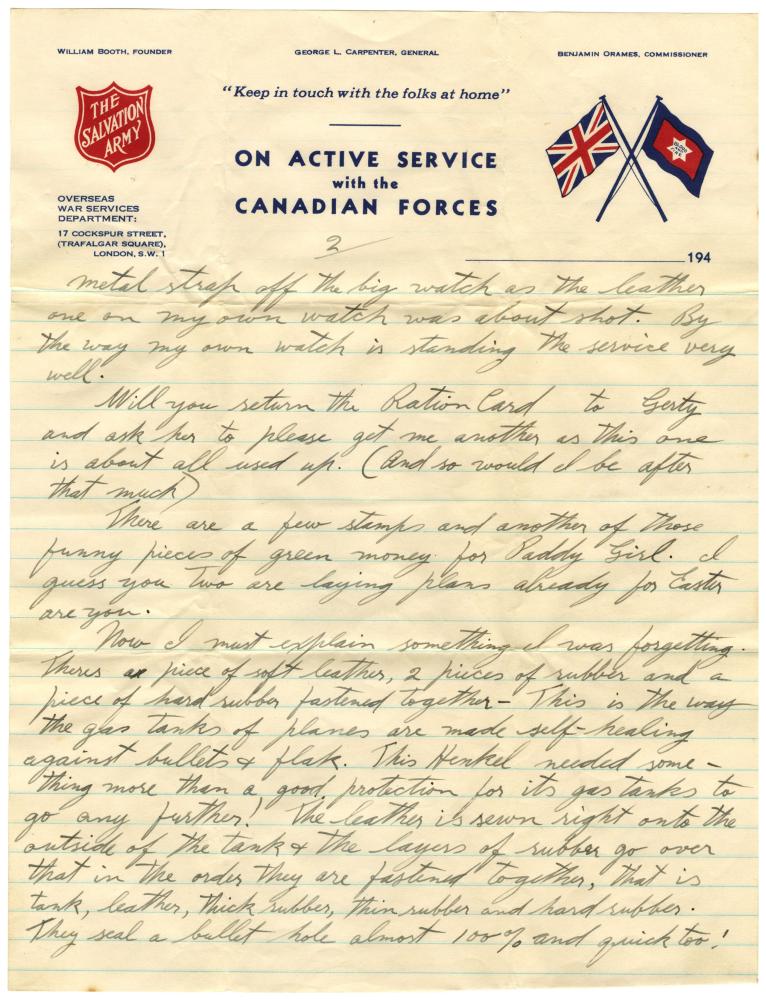 WILLIAM BOOTH, FOUNDER
GEORGE L. CARPENTER, GENERAL
BENJAMIN ORAMES, COMMISSIONER
THE
SALVATION
ARMY
"Keep in touch with the folks at home"
ON ACTIVE SERVICE
with the
CANADIAN FORCES
OVERSEAS
WAR SERVICES
DEPARTMENT:
17 COCKSPUR STREET,
(TRAFALGAR SQUARE),
LONDON, S.W. 1
2
194
metal strap off the big watch as the leather
one on my own watch was about shot. By
the way my own watch is standing the service very
well.
Will you return the Ration Card to Gerty
and ask her to please get me another as this one
is about all used up. (And so would I be after
that much)
There are a few stamps and another of those
funny pieces of green money for Paddy Girl. I
guess you two are laying plans already for Easter
are you.
Now I must explain something I was forgetting.
Theres a piece of soft leather, 2 pieces of rubber and a
piece of hard rubber fastened together - This is the way
the gas tanks of planes are made self-healing
against bullets & flak. This Henkel needed some-
thing more than a good protection for its gas tanks to
go any further! The leather is sewn right onto the
outside of the tank & the layers of rubber go over
that in the order they are fastened together, that is
tank, leather, thick rubber, thin rubber and hard rubber.
They seal a bullet hole almost 100% and quick too!